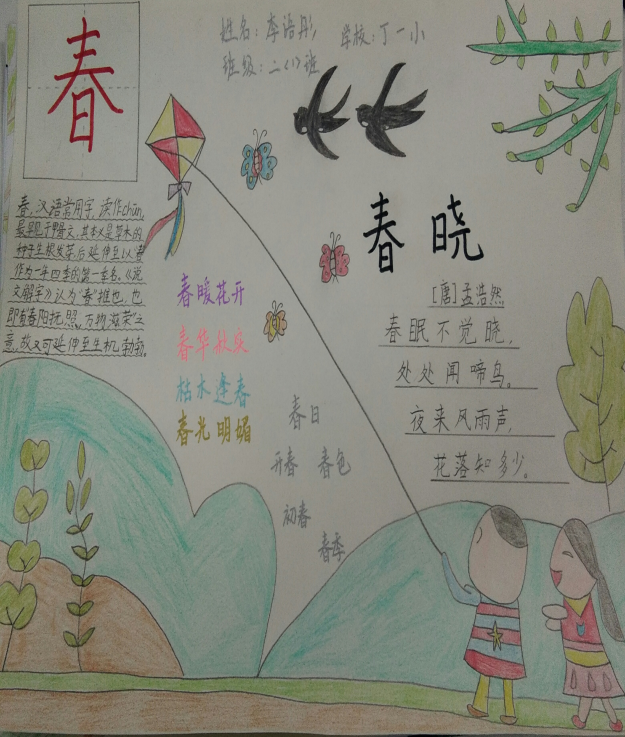 春
姓名：李语彤 学校：丁一小
班级：二（1）班
春，汉语常用字，读作chūn，
最早见于甲骨文，其本义是草木的
种子生根发芽，后延伸至以“春”
作为一年四季的第一季名，《说
文解字》认为“春”推也，也
即有“春阳抚照，万物滋荣”之
意，故又可延伸至生机勃勃。
春暖花开
春华秋实
枯木逢春
春光明媚
春日
开春 春色
初春
春季
春晓
[唐]孟浩然
春眠不觉晓，
处处闻啼鸟。
夜来风雨声，
花落知多少。